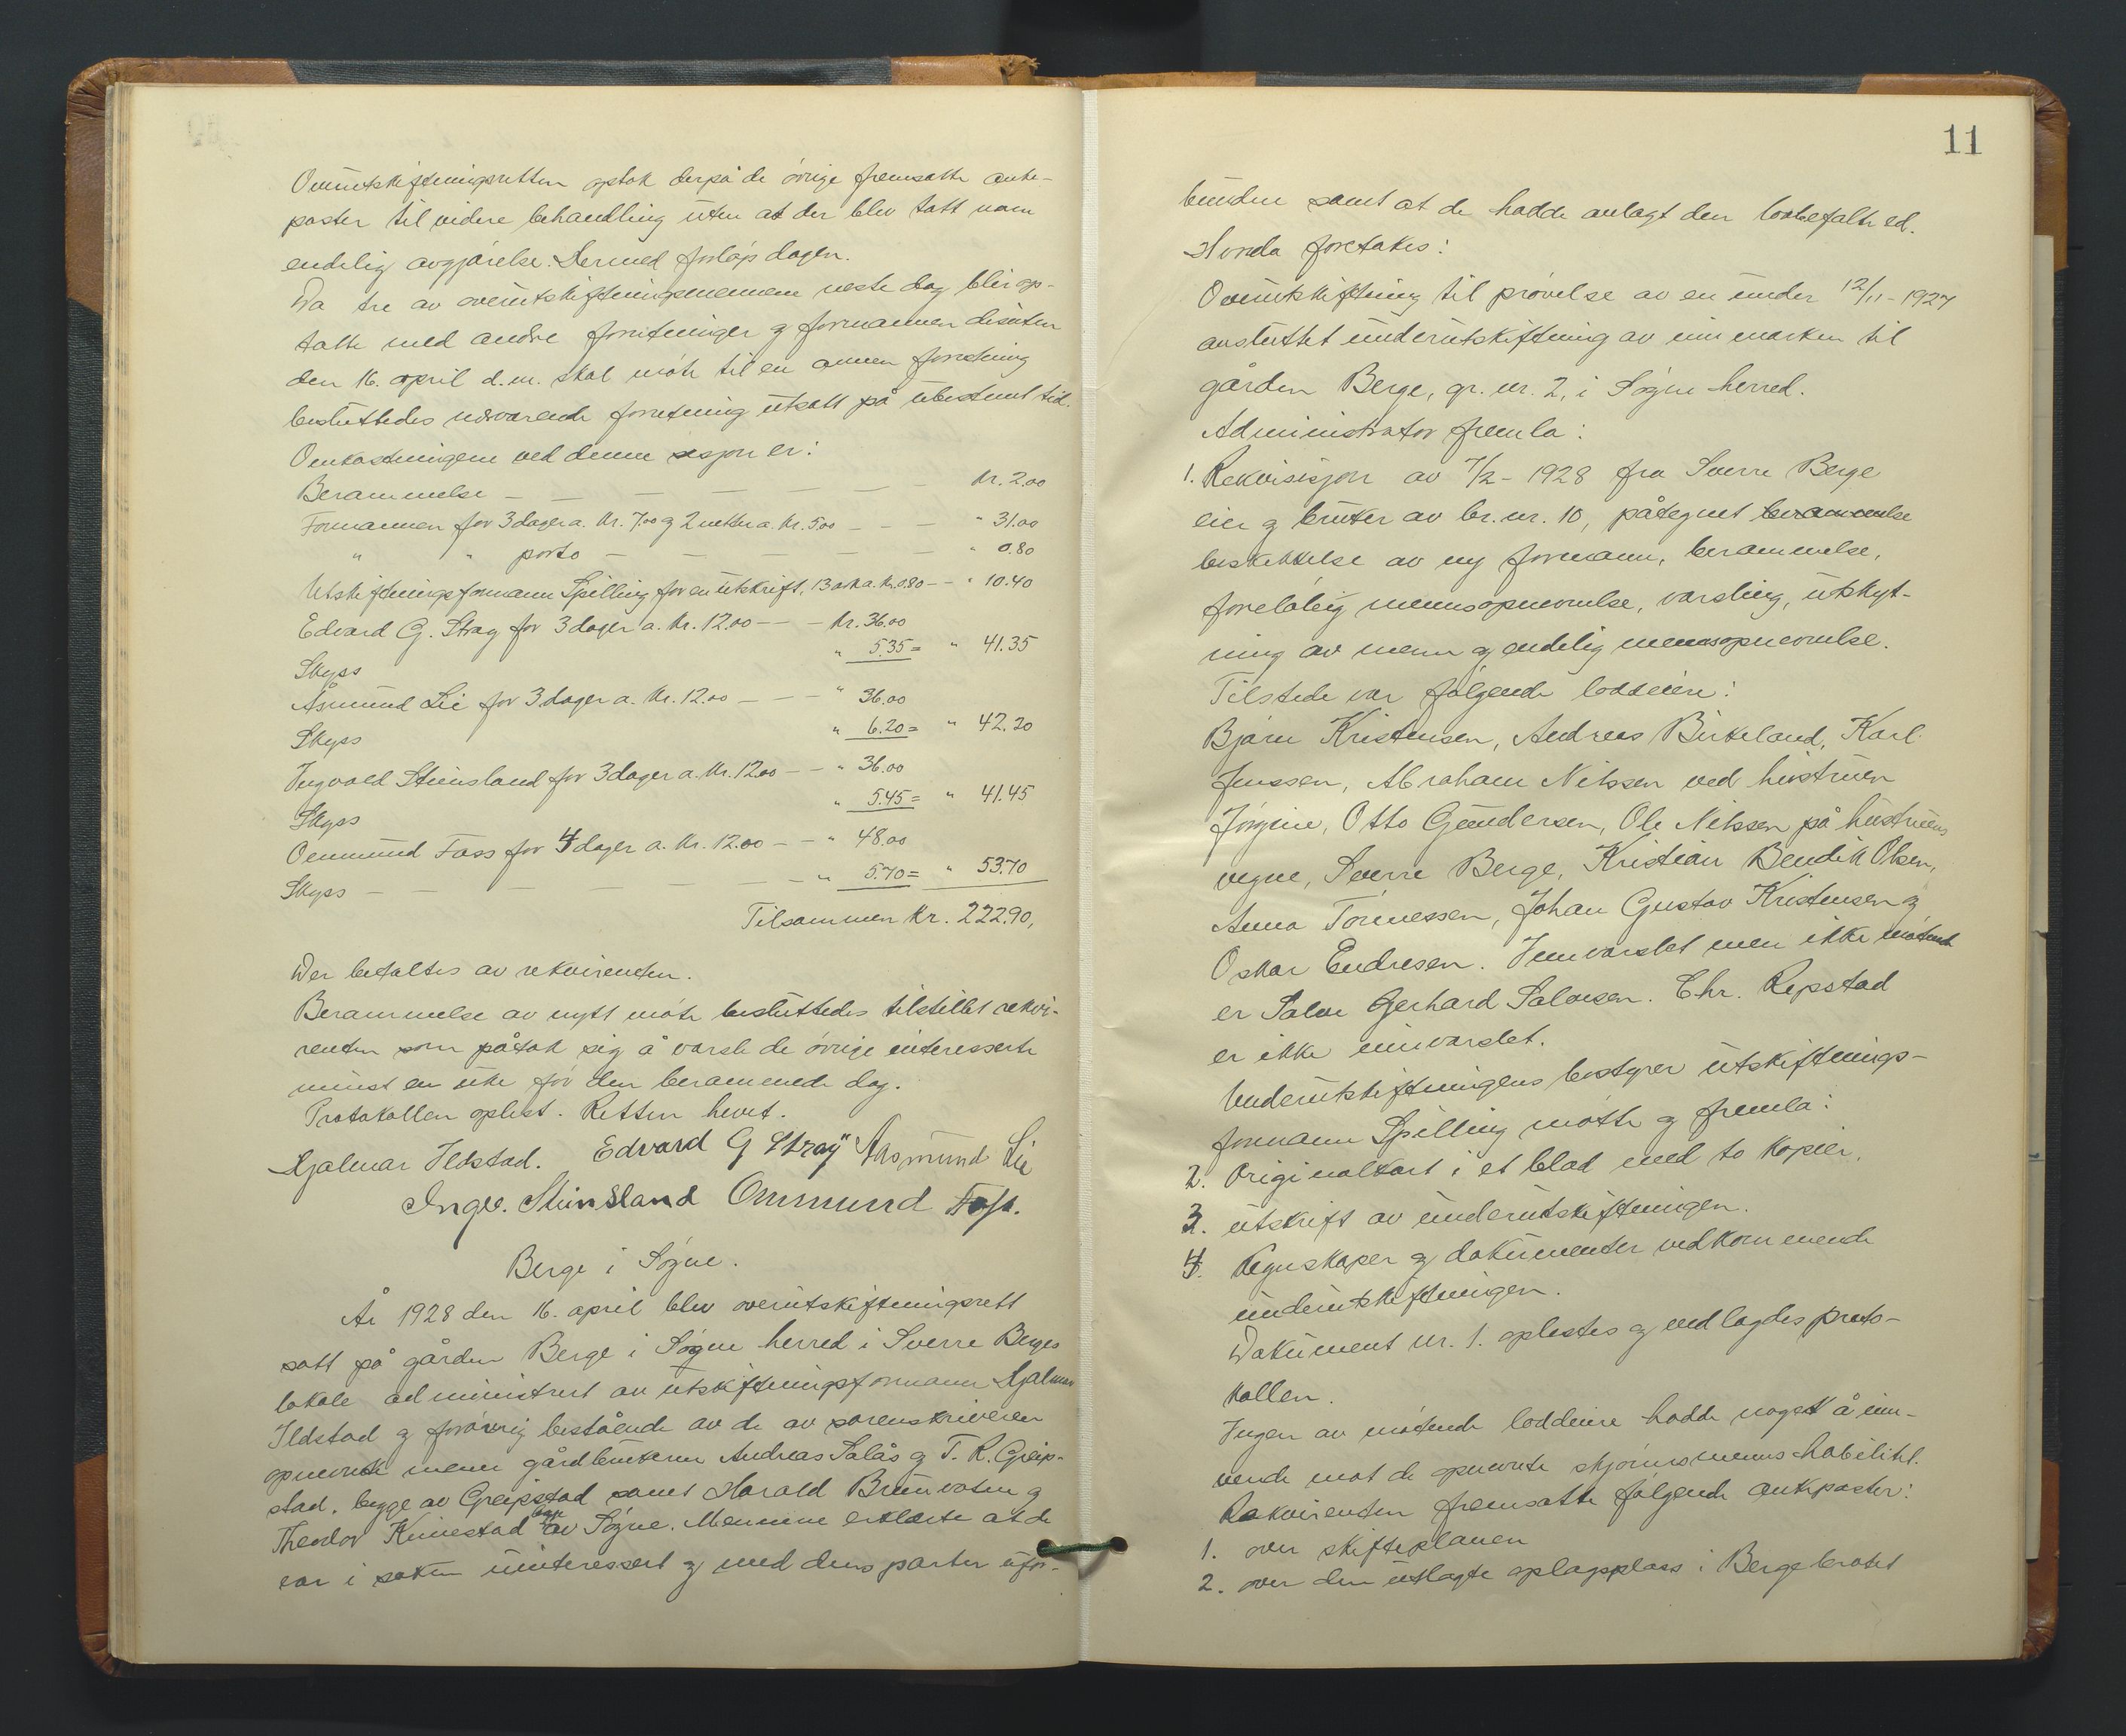 Overutskiftningsretten optok derpå de øvrige fremsatte anke-
poster til videre behandling uten at der blev tatt noen
endelig avgjørelse. Dermed forløp dagen.
Da tre av overutskiftningsmennene neste dag blir op-
tatt med andre forretninger og formannen desuten
den 16. april d. m. skal møte til en annen forretning
besluttedes nærværende forretning utsatt på ubestemt tid.
Omkostningene ved denne sesjon er:
Berammelse — — — — — — — kr. 2.00
Formannen for 3 dager a. kr. 7.00 og 2 netter a. kr. 5.00 — — — " 31.00
" " porto — — — — — — " 0.80
Utskiftningsformann Spilling for en utskrift, 13 ark a. kr. 0.80 — — " 10.40
Edvard G. Stray for 3 dager a. kr. 12.00 — — kr. 36.00
Skyss " 5.35 = " 41.35
Åsmund Lie for 3 dager a. kr. 12.00 — — " 36.00
Skyss " 6.20 = " 42.20
Ingvald Stensland for 3 dager a. kr. 12.00 — — " 36.00
Skyss " 5.45 = " 41.45
Ommund Foss for 4 dager a. kr. 12.00 — — " 48.00
Skyss — — — — — — " 5.70 = " 53.70
Tilsammen kr. 222.90,
Der betaltes av rekvirenten.
Berammelse av nytt møte besluttedes tilstillet rekvi-
renten som påtok sig å varsle de øvrige interesserte
minst en uke før den berammede dag.
Protokollen oplest. Retten hevet.
Hjalmar Ildstad. Edvard G Stray Aasmund Lie
Ingv. Stinsland Ommund Foss.
Berge i Søgne.
År 1928 den 16. april blev overutskiftningsrett
satt på gården Berge i Søgne herred i Sverre Berges
lokale administrert av utskiftningsformann Hjalmar
Ildstad og forøvrig bestående av de av sorenskriveren
opnevnte menn gårdbrukerne Andreas Salås og T. R. Greip-
stad, begge av Greipstad samt Harald Brunvatn og
Theodor Kimestad begge av Søgne. Mennene erklærte at de
var i saken uinteressert og med dens parter ufor-
11
bundne samt at de hadde avlagt den lovbefalte ed.
Hvorda foretakes:
Overutskiftning til prøvelse av en under 12/11-1927
avsluttet underutskiftning av innmarken til
gården Berge, gr. nr. 2, i Søgne herred.
Administrator fremla:
1. Rekvisisjon av 7/2-1928 fra Sverre Berge
eier og bruker av br. nr. 10, påtegnet berammelse
beskikkelse av ny formann, berammelse,
foreløbig mennsopnevnelse, varsling, utskyt-
ning av menn og endelig mennsopnevnelse.
Tilstede var følgende loddeiere:
Bjarne Kristensen, Andreas Birkeland, Karl
Jenssen, Abraham Nilssen ved hustruen
Jørgine, Otto Gundersen, Ole Nilssen på hustruens
vegne, Sverre Berge, Kristian Bendik Olsen,
Anna Tønnessen, Johan Gustav Kristensen og
Oskar Endresen. Innvarslet men ikke møtende
er Salve Gerhard Salvesen. Chr. Repstad
er ikke innvarslet.
Underutskiftningens bestyrer utskiftnings-
formann Spilling møtte og fremla:
2. Originalkart i et blad med to kopier.
3. utskrift av underutskiftningen.
4. Regnskaper og dokumenter vedkommende
underutskiftningen.
Dokument nr. 1. oplestes og vedlagdes proto-
kollen.
Ingen av møtende loddeiere hadde noget å inn-
vende mot de opnevnte skjønnsmenns habilitet.
Rekvirenten fremsatte følgende ankeposter:
1. over skifteplanen
2. over den utlagte oplagsplass i Bergebrotet